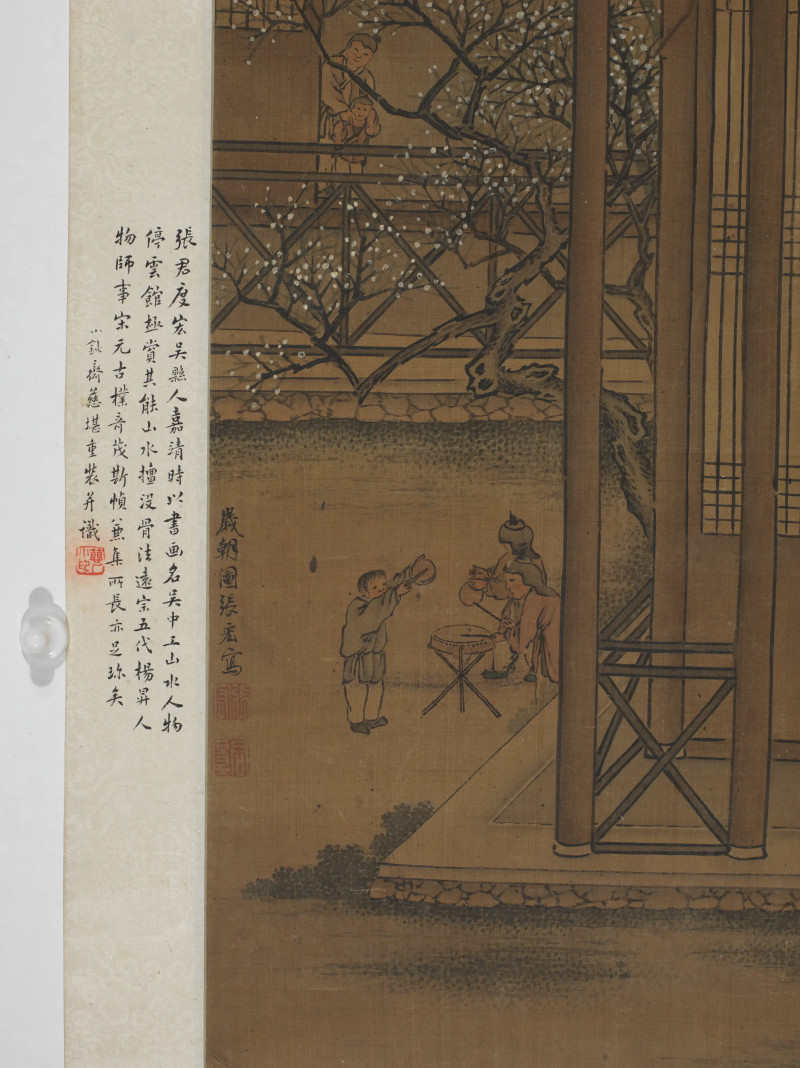 張君度宏吳縣人嘉靖時以書画名吳中工山水人物
停雲館極賞其能山水擅没骨法遠宗五代楊昇人
物師事宋元古樸奇茂斯幀兼集所長亦足珍矣
小 齋慈堪重裝并識
歲朝圖張宏寫